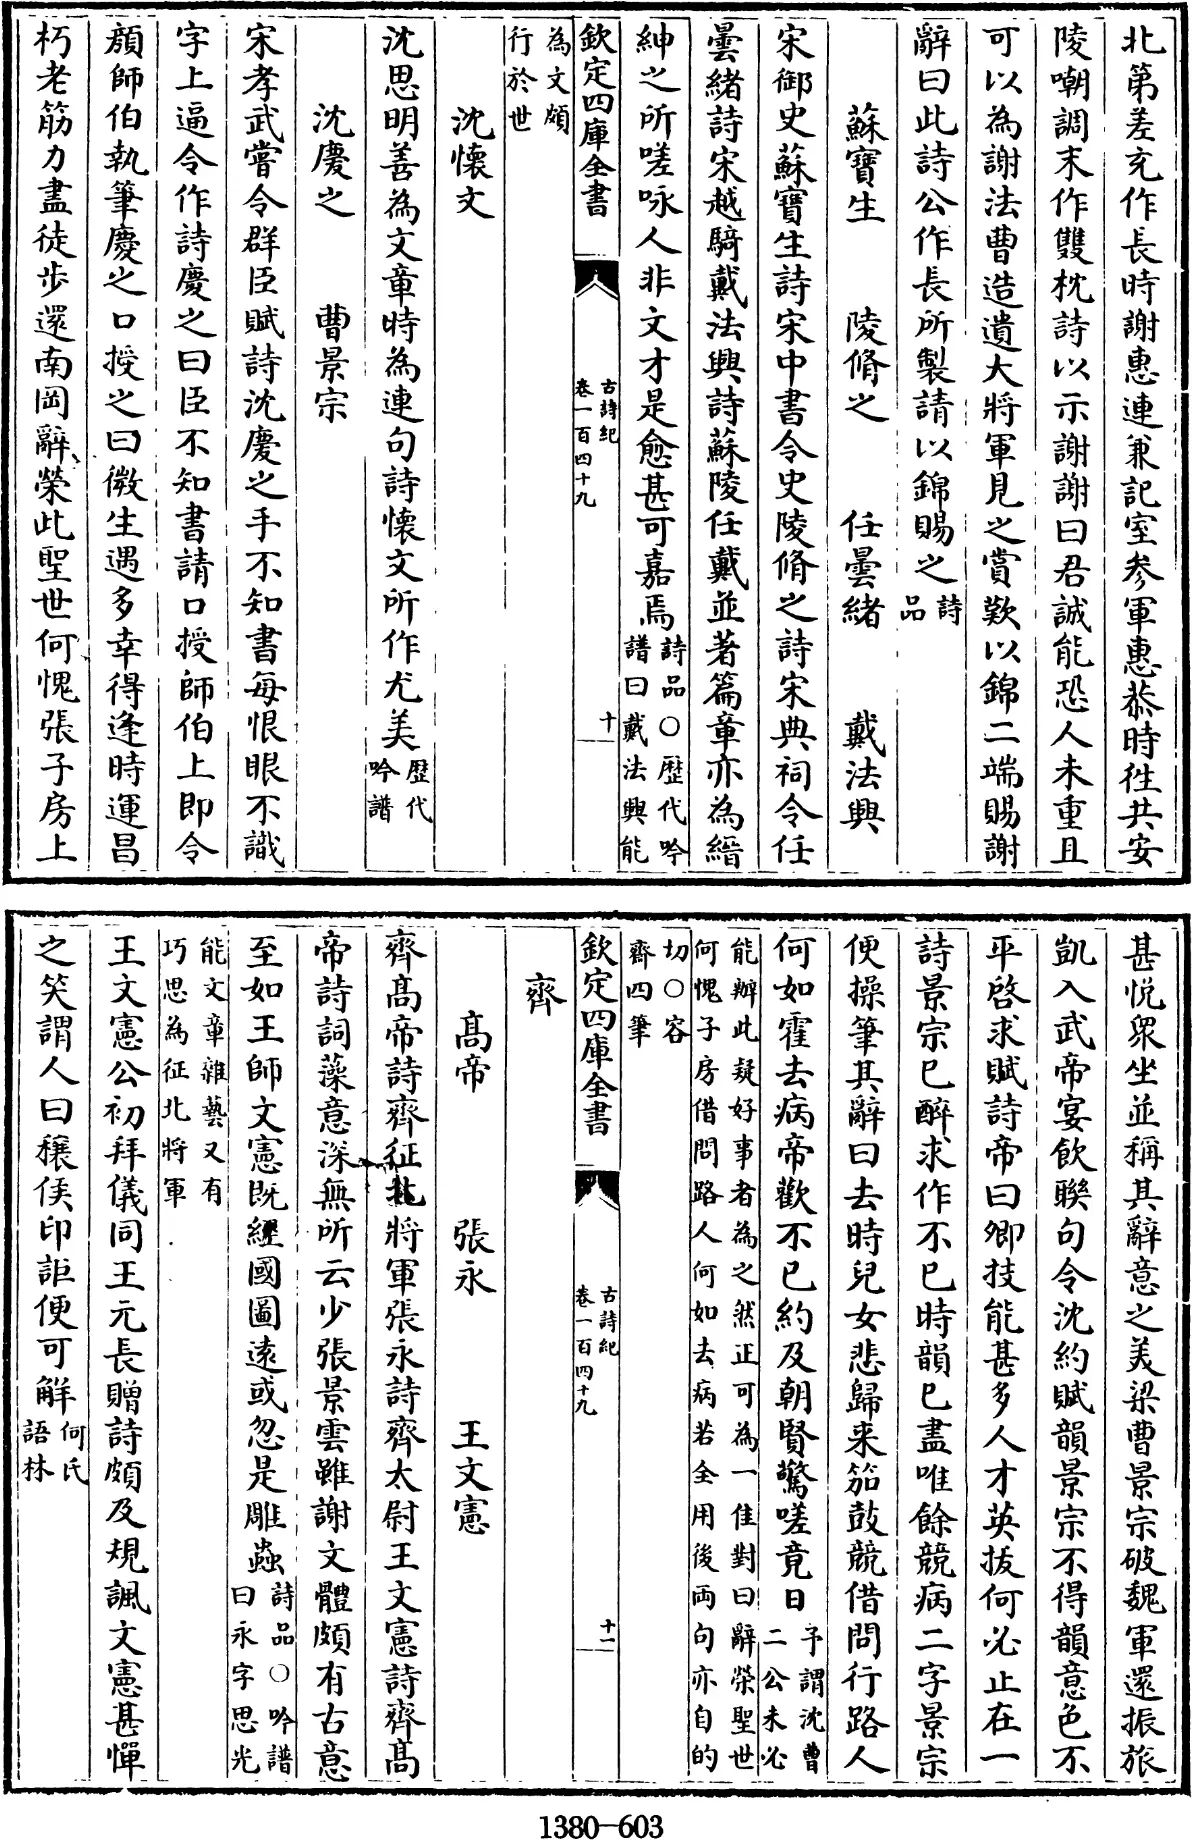 北第差充作長時謝惠連兼記室參軍惠恭時徃共安
陵嘲調末作雙枕詩以示謝謝曰君誠能恐人未重且
可以為謝法曹造遺大將軍見之賞歎以錦二端賜謝
辭曰此詩公作長所製請以錦賜之詩品
蘇寶生 陵脩之 任曇緒 戴法興
宋御史蘇寶生詩宋中書令史陵脩之詩宋典祠令任
曇緒詩宋越騎戴法興詩蘇陵任戴並著篇章亦為縉
紳之所嗟咏人非文才是愈甚可嘉焉詩品○歷代吟譜曰戴法興能
欽定四庫全書 古詩紀卷一百四十九 十
為文頗行於世
沈懷文
沈思明善為文章時為連句詩懷文所作尤美歷代吟譜
沈慶之 曹景宗
宋孝武嘗令群臣賦詩沈慶之手不知書每恨眼不識
字上逼令作詩慶之曰臣不知書請口授師伯上即令
顏師伯執筆慶之口授之曰微生遇多幸得逢時運昌
朽老筋力盡徒步還南岡辭榮此聖世何愧張子房上
甚悅衆坐並稱其辭意之美梁曹景宗破魏軍還振旅
凱入武帝宴飲聯句令沈約賦韻景宗不得韻意色不
平啓求賦詩帝曰卿技能甚多人才英拔何必止在一
詩景宗已醉求作不已時韻已盡唯餘競病二字景宗
便操筆其辭曰去時兒女悲歸来笳鼓競借問行路人
何如霍去病帝歡不已約及朝賢驚嗟竟日予謂沈曹二公未必
能辦此疑好事者為之然正可為一佳對曰辭榮聖世
何愧子房借問路人何如去病若全用後両句亦自的
切○容齋四筆
欽定四庫全書 古詩紀卷一百四十九 十一
齊
髙帝 張永 王文憲
齊髙帝詩齊征北將軍張永詩齊太尉王文憲詩齊髙
帝詩詞藻意深無所云少張景雲雖謝文體頗有古意
至如王師文憲既經國圖遠或忽是雕蟲詩品○吟譜曰永字思光
能文章雜藝又有巧思為征北將軍
王文憲公初拜儀同王元長贈詩頗及規諷文憲甚憚
之笑謂人曰穰侯印詎便可解何氏語林
1380—603